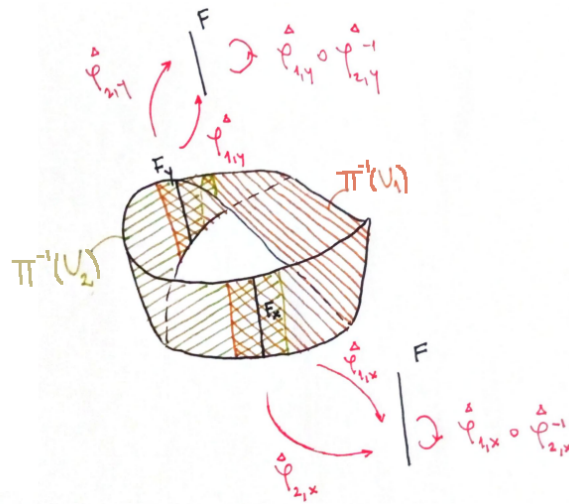 F
φ̂₂,y
φ̂₁,y ∘ φ̂₂,y⁻¹
φ̂₁,y
F_y
π⁻¹(U₁)
π⁻¹(U₂)
F_x
φ̂₁,x
F
φ̂₁,x ∘ φ̂₂,x⁻¹
φ̂₂,x